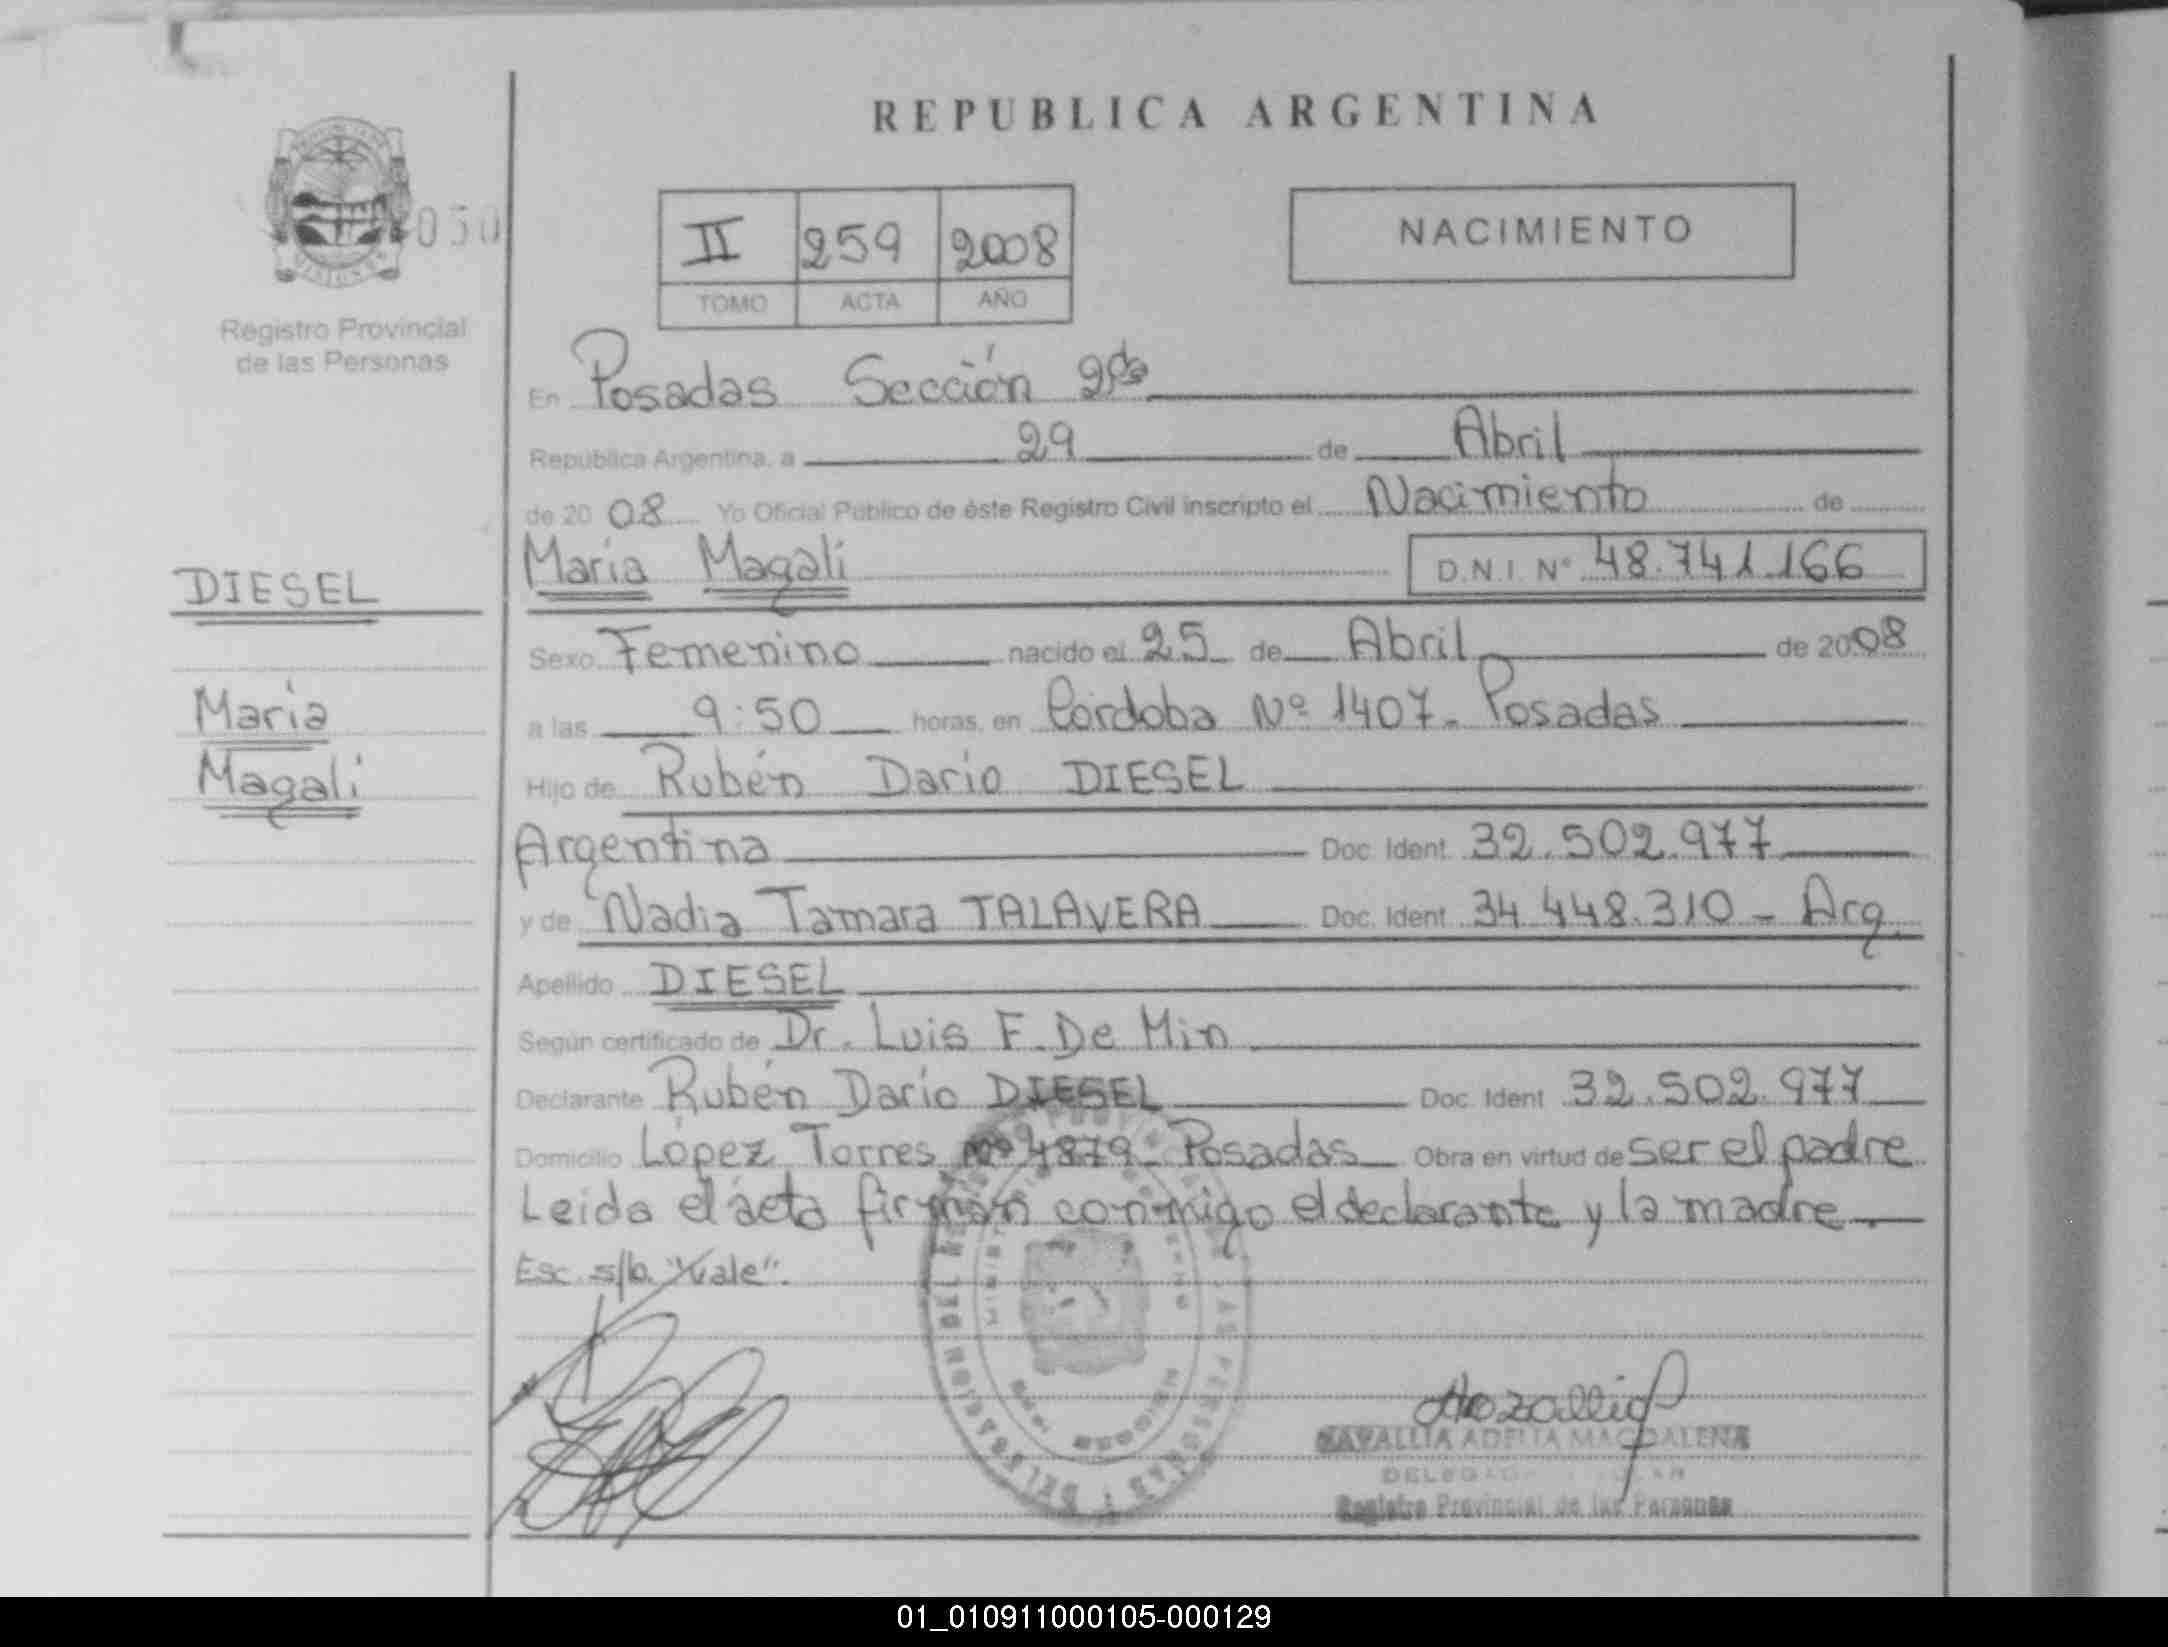 REPUBLICA ARGENTINA
050
II 259 2008
TOMO ACTA AÑO
NACIMIENTO
Registro Provincial
de las Personas
En Posadas Sección 2da
República Argentina, a 29 de Abril
de 2008 Yo Oficial Público de éste Registro Civil inscripto el Nacimiento de
María Magalí D.N.I. Nº 48.741.166
DIESEL
María
Magalí
Sexo Femenino nacido el 25 de Abril de 2008
a las 9:50 horas, en Córdoba Nº 1407. Posadas
Hijo de Rubén Darío DIESEL
Argentina Doc. Ident. 32.502.977
y de Nadia Tamara TALAVERA Doc. Ident. 34.448.310 - Arg.
Apellido DIESEL
Según certificado de Dr. Luis F. De Min
Declarante Rubén Darío DIESEL Doc. Ident. 32.502.977
Domicilio López Torres nº 4879 - Posadas Obra en virtud de ser el padre
Leida el acta firman conmigo el declarante y la madre.
Esc. s/b. "Vale".
ADELIA MAGDALENA
Registro Provincial de las Personas
01_010911000105-000129